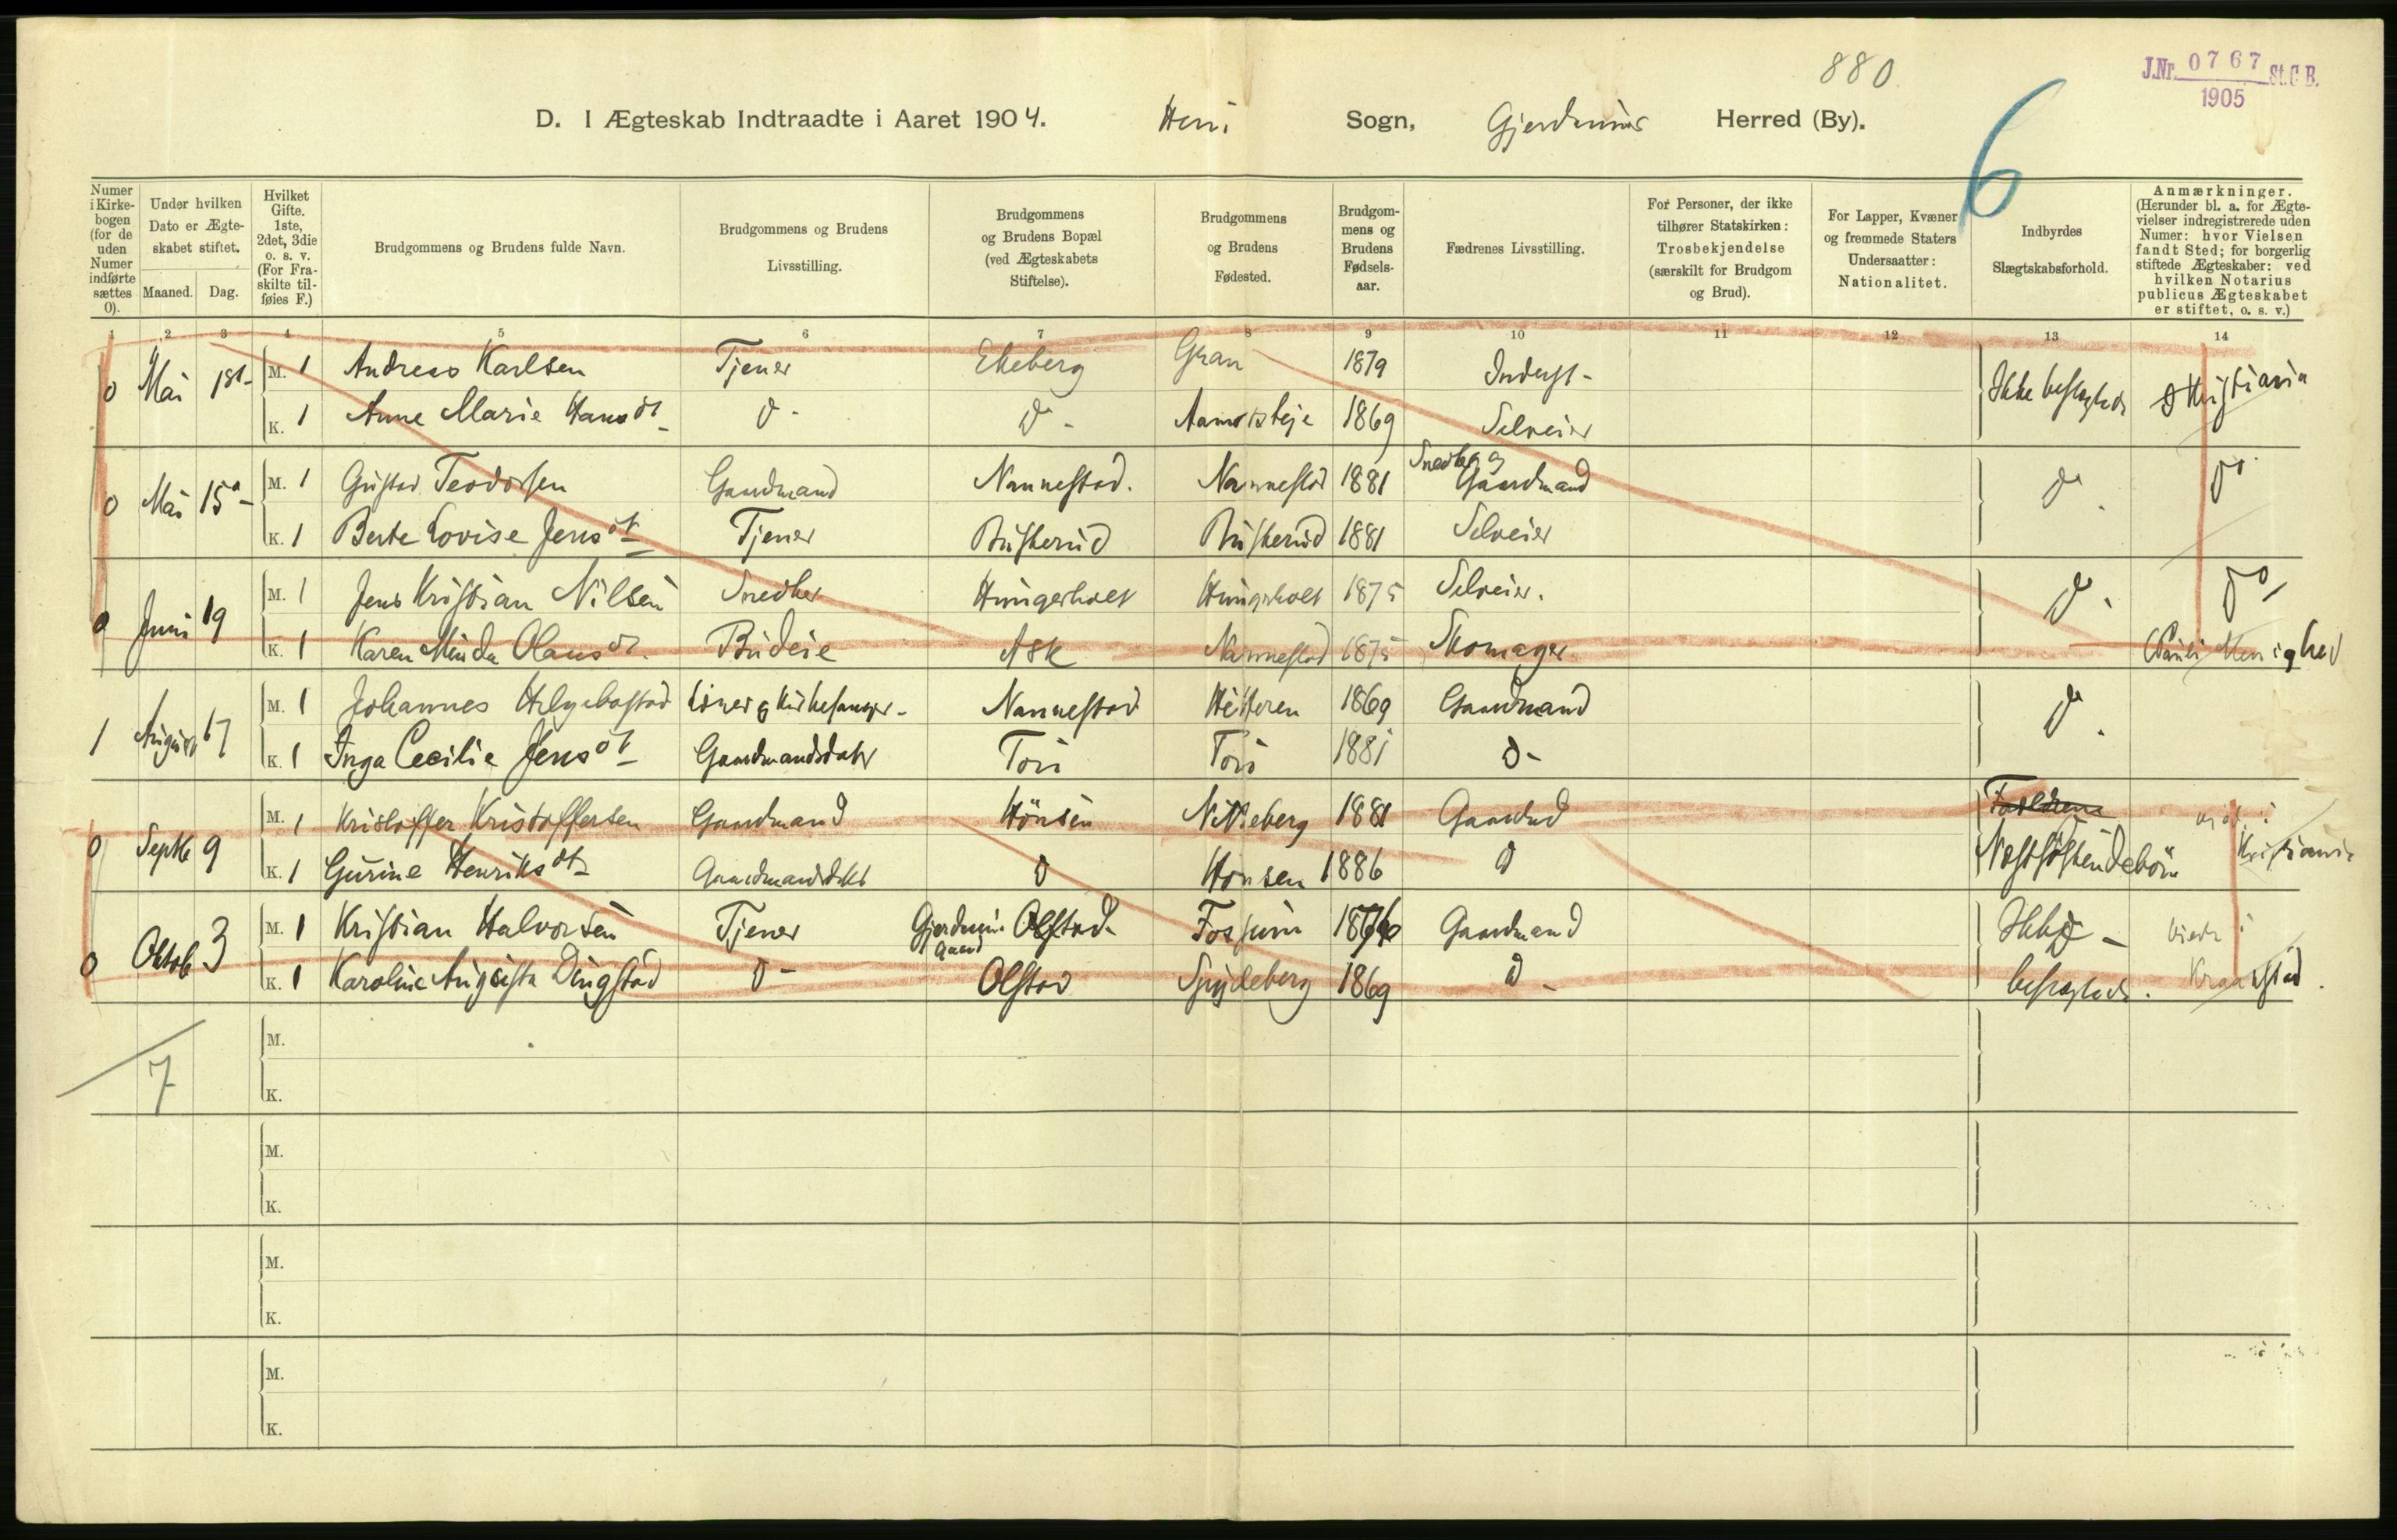 880
J.Nr. 0767 St.C.B.
1905
D. I Ægteskab Indtraadte i Aaret 1904. Heni Sogn, Gjerdrums Herred (By).
6
Numer i Kirkebogen (for de uden Numer indførte sættes 0).
Under hvilken Dato er Ægteskabet stiftet.
Maaned. Dag.
Hvilket Gifte. 1ste, 2det, 3die o. s. v. (For Fraskilte tilføies F.)
Brudgommens og Brudens fulde Navn.
Brudgommens og Brudens Livsstilling.
Brudgommens og Brudens Bopæl (ved Ægteskabets Stiftelse).
Brudgommens og Brudens Fødested.
Brudgommens og Brudens Fødselsaar.
Fædrenes Livsstilling.
For Personer, der ikke tilhører Statskirken: Trosbekjendelse (særskilt for Brudgom og Brud).
For Lapper, Kvæner og fremmede Staters Undersaatter: Nationalitet.
Indbyrdes Slægtskabsforhold.
Anmærkninger. (Herunder bl. a. for Ægtevielser indregistrerede uden Numer: hvor Vielsen fandt Sted; for borgerlig stiftede Ægteskaber: ved hvilken Notarius publicus Ægteskabet er stiftet, o. s. v.)
1 2 3 4 5 6 7 8 9 10 11 12 13 14
0 Mai M. 1 Andreas Karlsen Tjener Ekeberg Gran 1879 Inderst - Ikke beslægtede Kristiania
K. 1 Anne Marie Hansdt D - D - 1869 Selveier
0 Mai 15 M. 1 Gustav Teodorsen Gaardmand Nannestad. Nannestad 1881 Snedker og Gaardmand D. Do
K. 1 Berte Lovise Jensdt Tjener Buskerud Buskerud 1881 Selveier
0 Juni 19 M. 1 Jens Kristian Nilsen Snedker Hungerholt Hungerholt 1875 Selveier. D. Do
K. 1 Karen Minda Olausdt. Budeie Ask Nannestad 1875 Skomager (Pauli Menighed
1 August 17 M. 1 Johannes Helgebostad Lærer og Kirkesanger - Nannestad Hitteren 1869 Gaardmand D.
K. 1 Inga Cecilie Jensdt Gaardmandsdatr 1881 D -
0 Septb 9 M. 1 Kristoffer Kristoffersen Gaardmand Hönsen Nitteberg 1881 Gaardmd Forældrene viet i
K. 1 Gurine Henriksdt Gaardmandsdatr D Hönsen 1886 D Næstsöskendebörn Kristiania
0 Oktob 3 M. 1 Kristian Halvorsen Tjener Gjerdrum Olstad Fossum Gaardmand Ikke - viede i
K. 1 Karoline Augusta Dingstad D - Olstad Spydeberg 1869 D - beslægtede. Kraakstad.
7
M.
K.
M.
K.
M.
K.
M.
K.